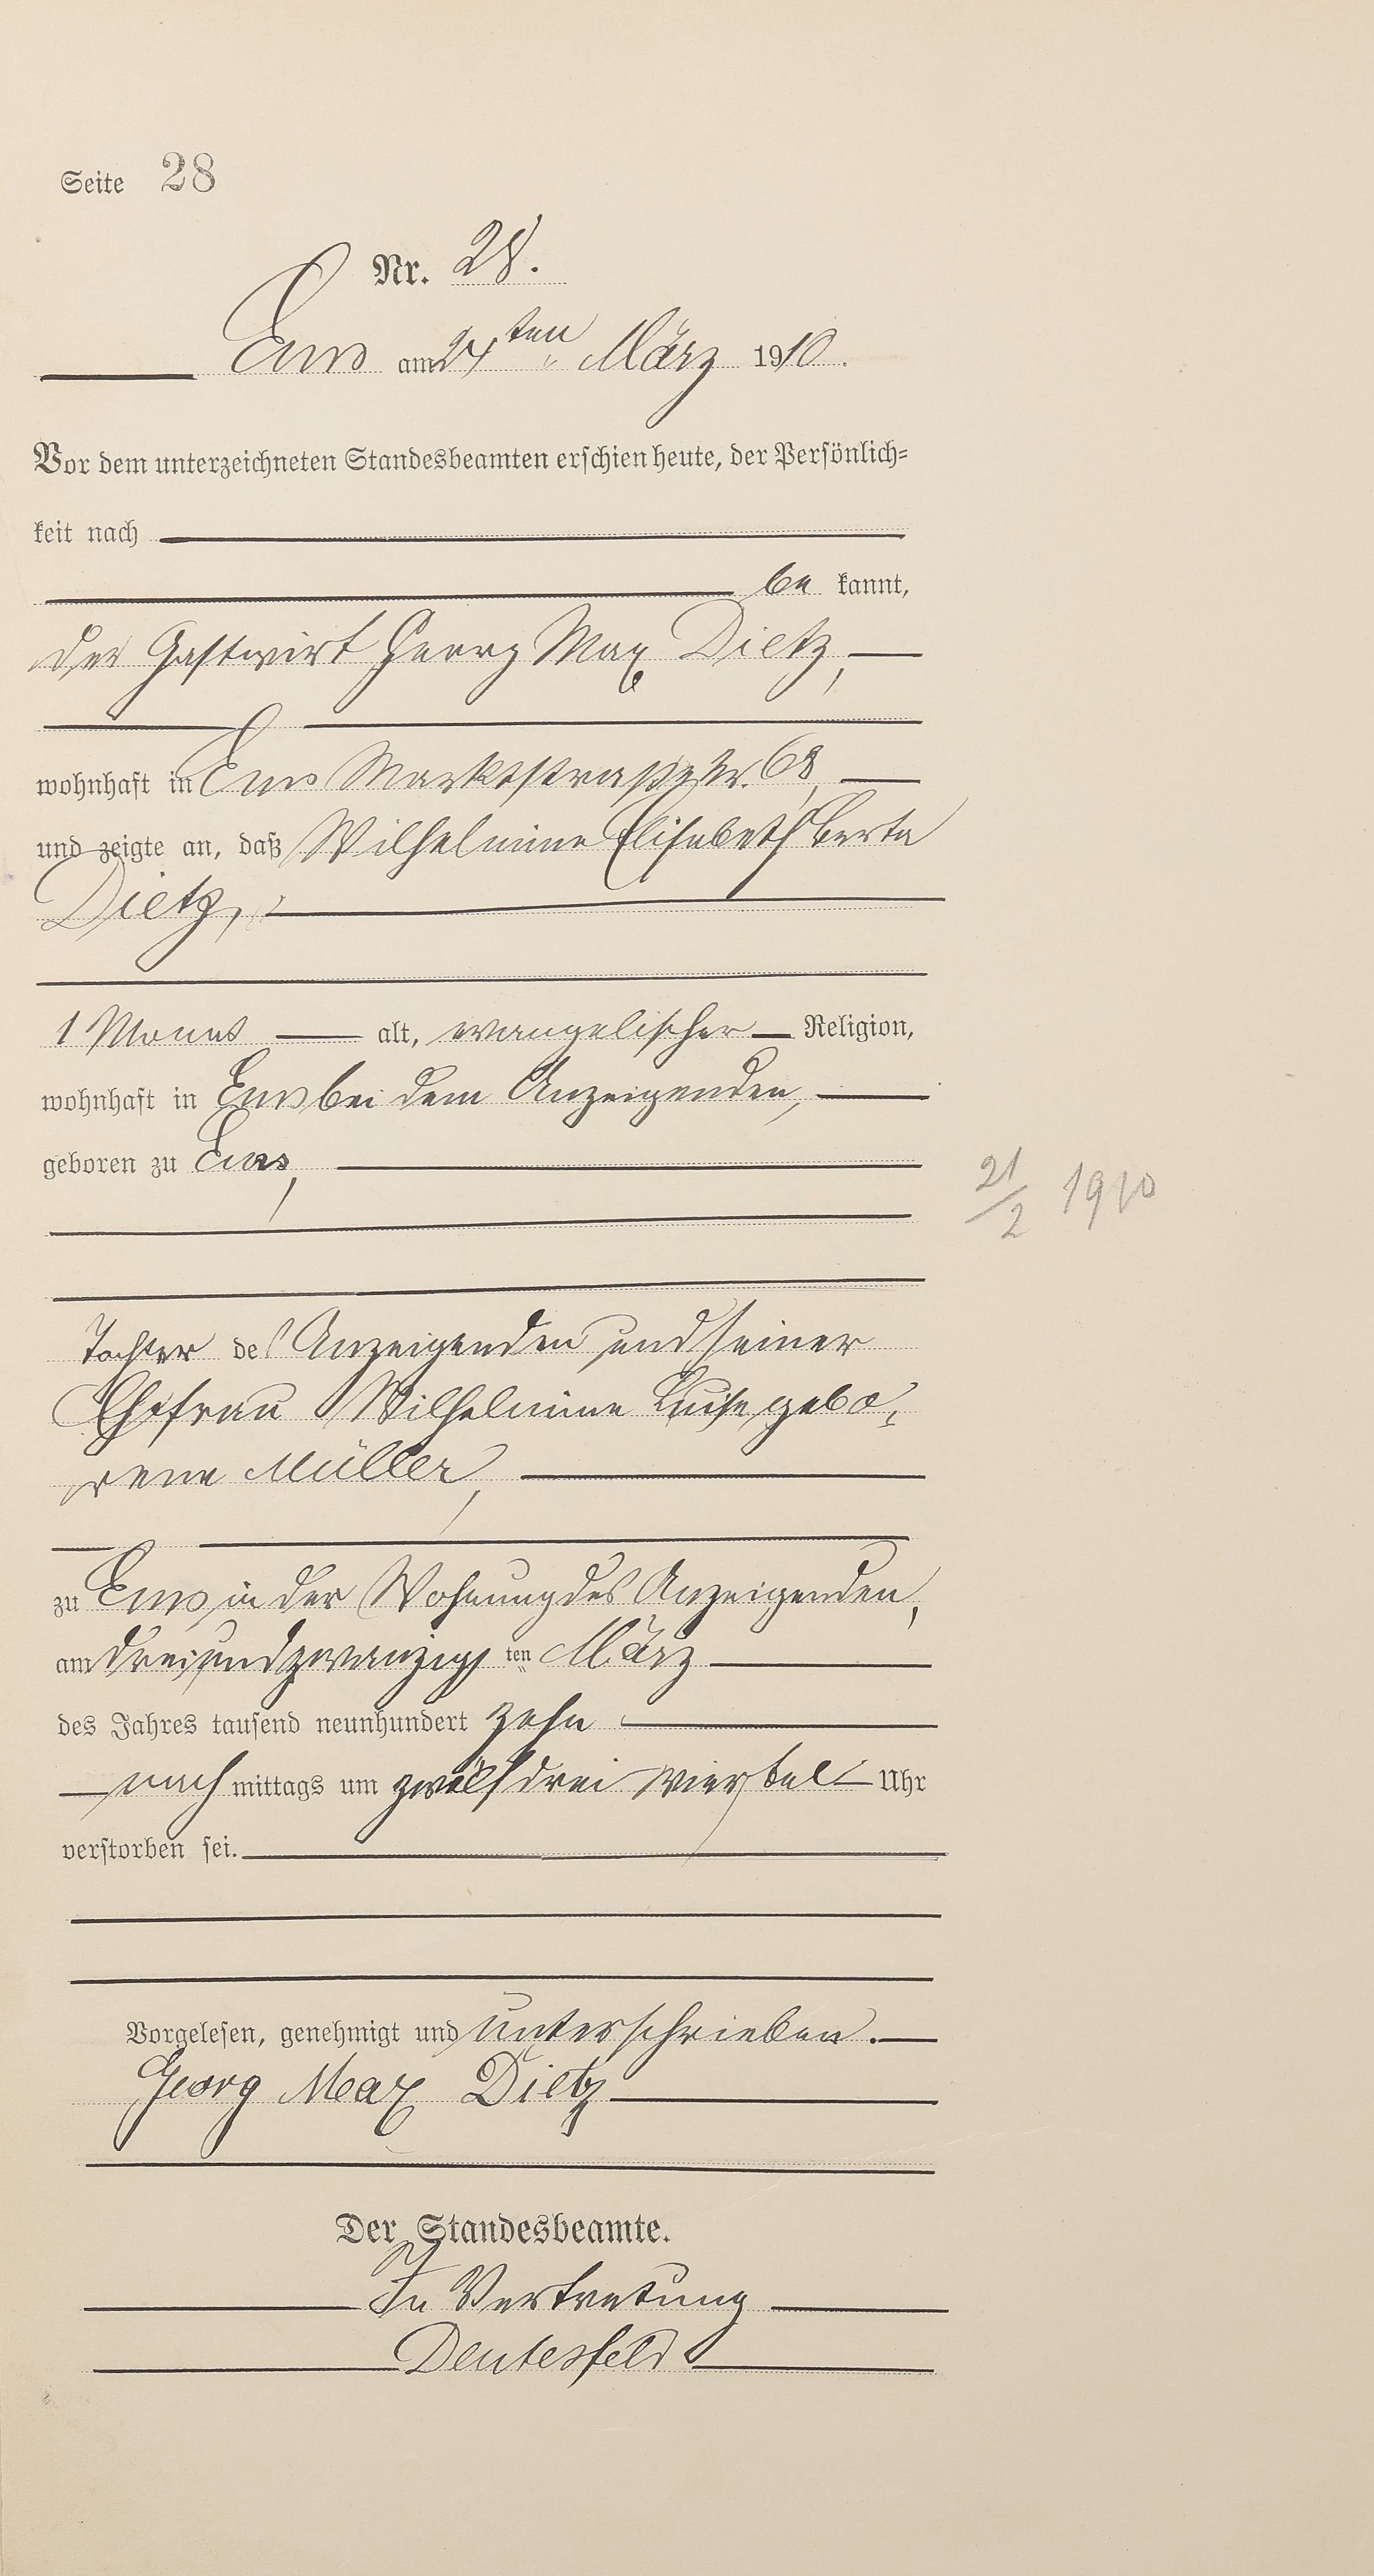 Seite 28
Nr. 28.
Ems am 24ten März 1910.
Vor dem unterzeichneten Standesbeamten erschien heute, der Persönlich-
keit nach
be kannt,
der Gastwirt Georg Max Dietz,
wohnhaft in Ems Marktstraße Nr. 68,
und zeigte an, daß Wilhelmine Elisabeth Berta
Dietz,
1 Monat alt, evangelischer Religion,
wohnhaft in Ems bei dem Anzeigenden,
geboren zu Ems,
21/2 1910
Tochter des Anzeigenden und seiner
Ehefrau Wilhelmine Luise gebo-
rene Müller,
zu Ems, in der Wohnung des Anzeigenden,
am dreiundzwanzig ten März
des Jahres tausend neunhundert zehn
nach mittags um zwölf drei viertel Uhr
verstorben sei.
Vorgelesen, genehmigt und unterschrieben.
Georg Max Dietz
Der Standesbeamte.
In Vertretung
Deutesfeld